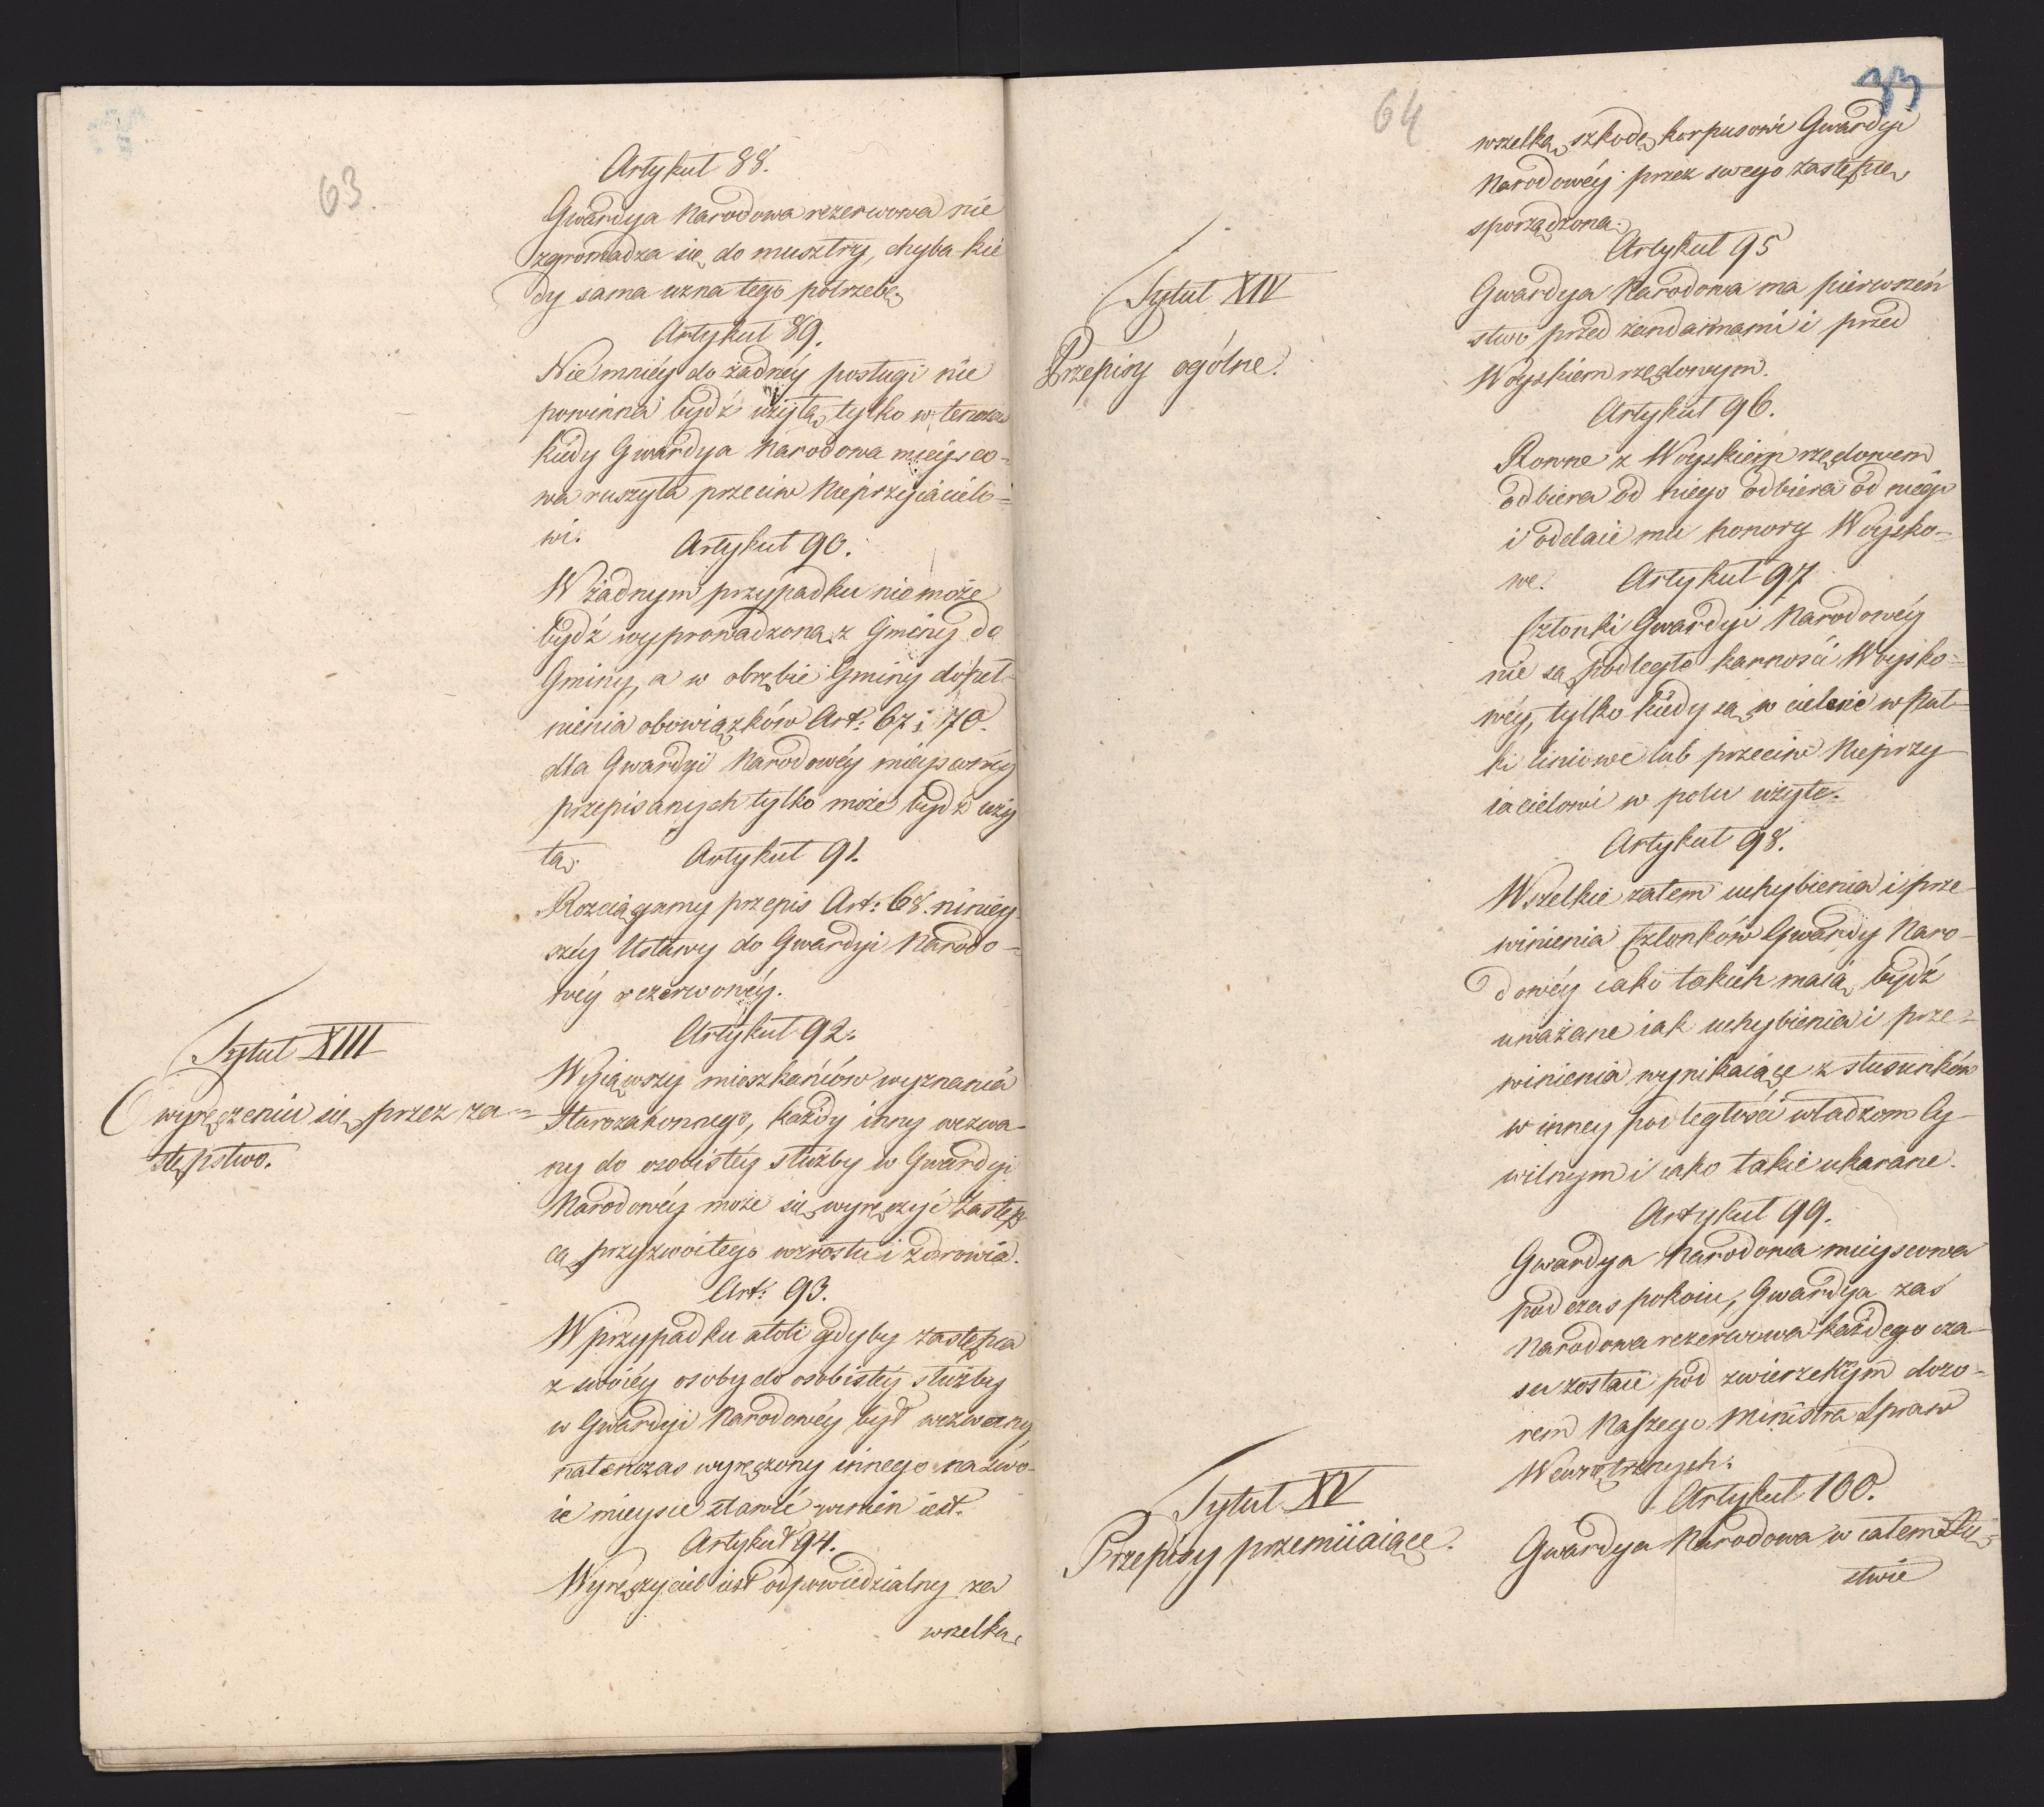 63
Artykuł 88.
Gwardya Narodowa rezerwowa nie
zgromadza się do musztry, chyba kie
dy sama uzna tego potrzebę.
Artykuł 89.
Nie mniéy do żadnéy posługi nie
powinna bydź użytą, tylko w tenczas
kiedy Gwardya Narodowa mieysco=
wa ruszyła przeciw Nieprzyiacielo=
wi.
Artykuł 90.
W żadnym przypadku nie może
bydź wyprowadzoną z Gminy do
Gminy, a w obrębie Gminy dopeł-
nienia obowiązków Art: 67 i 70.
dla Gwardyi Narodowéy mieyscowéy
przepisanych tylko może bydź uży
tą.
Artykuł 91.
Rozciągamy przepis Art: 68. niniey
széy Ustawy do Gwardyi Narodo=
wéy rezerwowéy.
Tytuł XIII
O wyręczeniu się przez za=
stępstwo.
Artykuł 92.
Wyiąwszy mieszkańców wyznania
Starozakonnego, każdy inny wezwa-
ny do osobistéy służby w Gwardyi
Narodowéy może się wyręczyć Zastęp
cą przyzwoitego wzrostu i zdrowia.
Art: 93.
W przypadku atoli gdyby zastępca
z swoiéy osoby do osobistéy służby
w Gwardyi Narodowéy był wezwany
natenczas wyręczony innego na swo-
ie mieysce stawić winien iest.
Artykuł 94.
Wyręczyciel iest odpowiedzialny za
wszelką
64
33
wszelką szkodę korpusowi Gwardyi
Narodowéy przez swego Zastępcę
sporządzoną.
Tytuł XIV
Przepisy ogólne.
Artykuł 95
Gwardya Narodowa ma pierwszeń
stwo przed żandarmami i przed
Woyskiem rzędowym.
Artykuł 96.
Rowne z Woyskiem rzędowem
odbiera od niego odbiera od niego
i oddaie mu honory Woysko=
we.
Artykuł 97
Członki Gwardyi Narodowéy
nie są podległe karności Woysko=
wéy, tylko kiedy są w cielone w Puł-
ki liniowe lub przeciw Nieprzy
iacielowi w polu użyte.
Artykuł 98.
Wszelkie zatem uchybienia i prze-
winienia Członków Gwardy Naro-
dowéy iako takich maią bydź
uważane iak uchybienia i prze=
winienia wynikaiące z stusunków
w inney podległości władzom Cy-
wilnym i iako takie ukarane.
Artykuł 99.
Gwardya Narodowa mieyscowa
podczas pokoiu, Gwardya zaś
Narodowa rezerwowa każdego cza-
su zostaie pod zwierzchnym dozo=
rem Naszego Ministra Spraw
Wewnętrznych.
Tytuł XV
Przepisy przemiiaiące.
Artykuł 100.
Gwardya Narodowa w całem
stwie